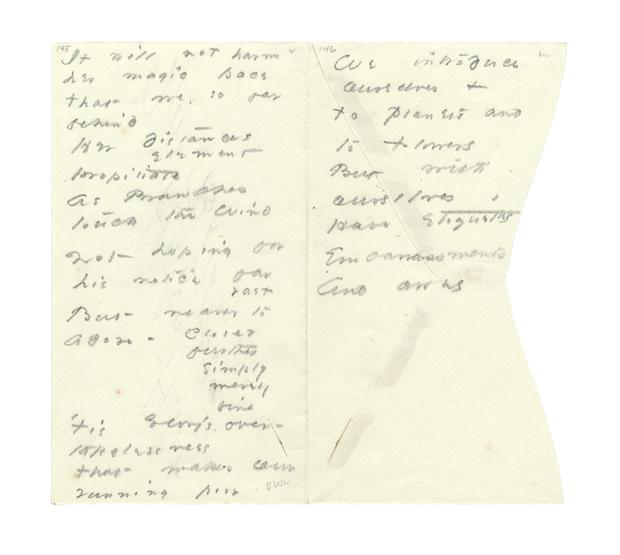 145
It will not harm
her magic pace
that we, so far
behind
Her Distances
Element
propitiate
As Branches
touch the Wind
Not hoping for
his notice far
vast
But nearer to
adore - closer
further
simply
merely
'tis Glory's over-
takelessness
that makes our
running poor
our
146
We introduce
ourselves
to planets and
to flowers
But with
ourselves
Have etiquettes
Embarrassments
And awes